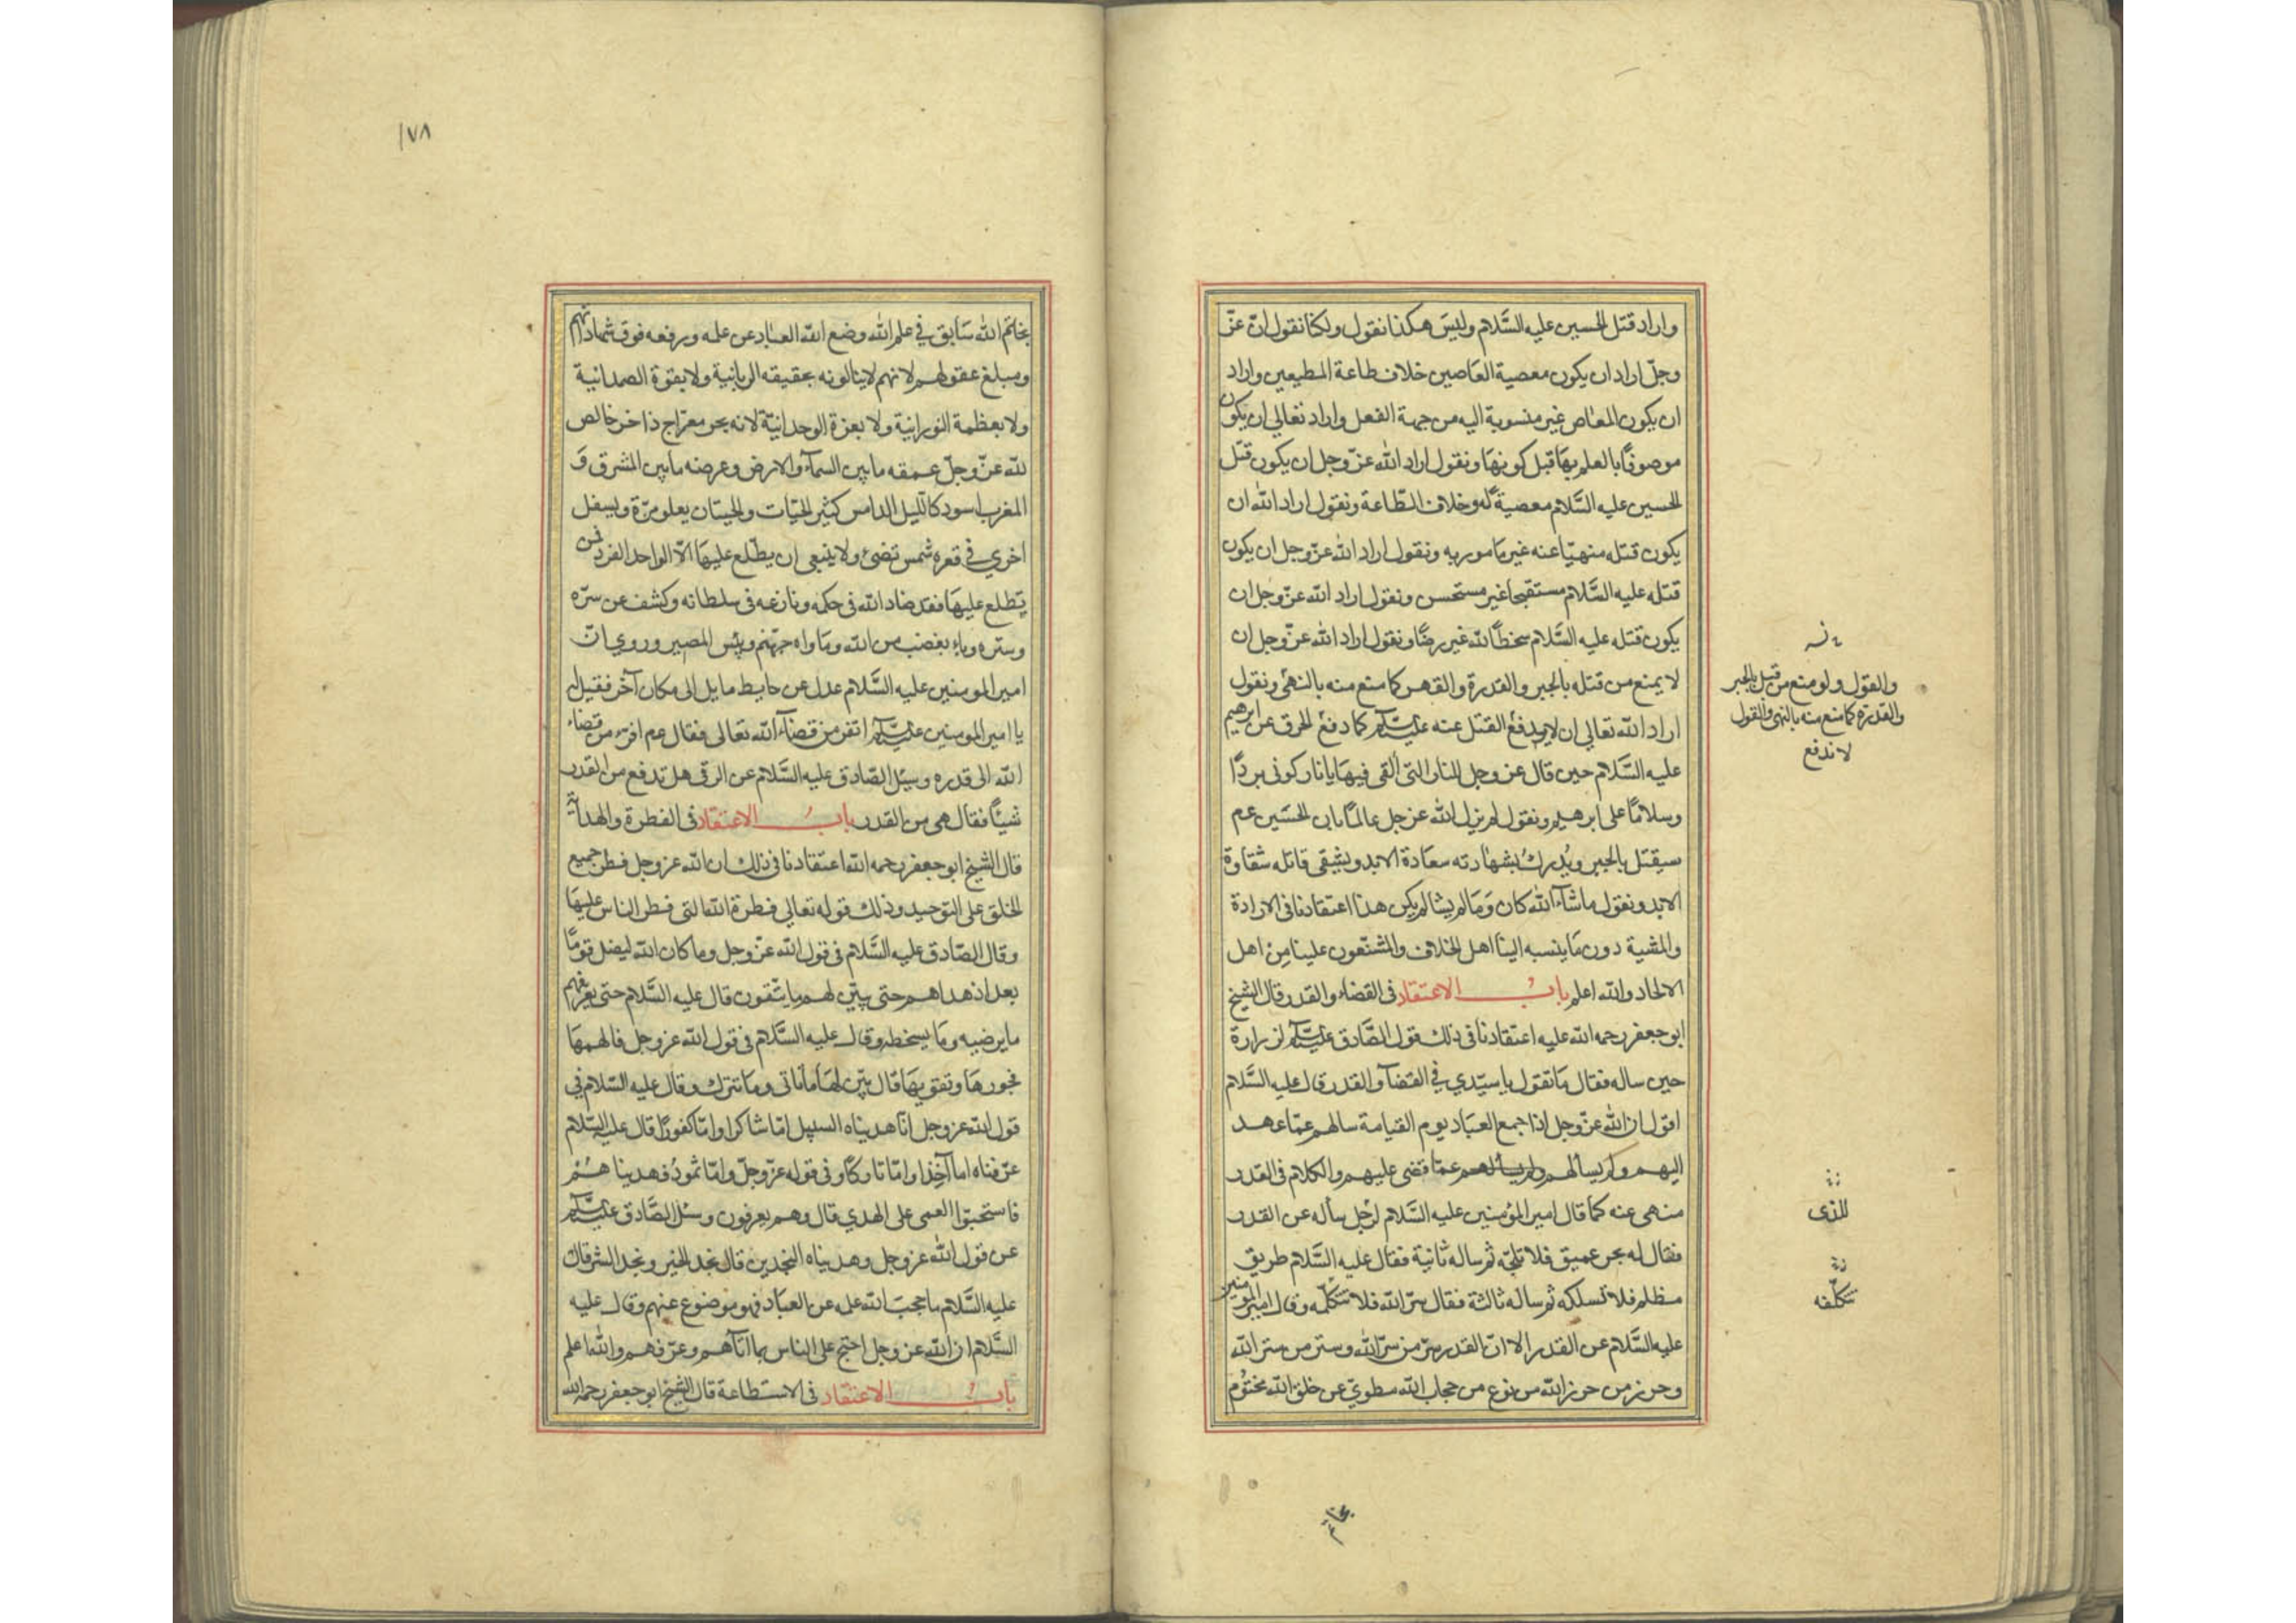 واراد قتل الحسين عليه السَّلام وليسَ هكذا نقول ولكنا نقول انّ عزّ
وجلّ اراد ان يكون معصية العَاصين خلاف طاعة المطيعين واراد
ان يكون المعاصى غير منسوبة اليه من جهة الفعل واراد تعالي ان يكون
موصوفًا بالعلم بهَا قبل كونهَا ونقول اراد الله عزّ وجل ان يكون قتل
الحسين عليه السَّلام معصيةً له وخلاف الطّاعة ونقول اراد الله ان
يكون قتله منهيّا عنه غير مَامور به ونقول اراد الله عزّ وجل ان يكون
قتله عليه السَّلام مستقبحا غير مستحسن ونقول اراد الله عزّ وجل ان
يكون قتله عليه السَّلام سخطًا لله غير رضًا ونقول اراد الله عزّ وجل ان
لا يمنع من قتله بالجبر والقدرة والقهر كما منع منه بالنهى ونقول
اراد الله تعالي ان لا يدفع القتل عنه عليه السّلم كما دفع الحرق عن ابرهيم
عليه السَّلام حين قال عز وجل للنار التى القى فيهَا يا نار كونى بردًا
وسلامًا على ابرهيم ونقول لم يزل الله عز جل عالمًا بان الحسَين عم
سيقتل بالجبر ويُدرك بشهادته سعَادة الابد ويشقى قاتله شقاوة
الابد ونقول ما شآء الله كان وَمَا لم يشا لم يكن هذا اعتقادنا فى الارادة
والمشية دون مَا ينسبه الينا اهل الخلاف والمشنّعون علينا مِن اهل
الالحاد والله اعلم باب الاعتقاد فى القضاء والقدر قال الشيخ
ابو جعفر رحمه الله عليه اعتقادنا فى ذلك قول الصَّادق عليه السّلم لزرارة
حين ساله فقال مَا تقول يا سيّدي في القضآ والقدر قال عليه السَّلام
اقول ان الله عزّ وجل اذا جمع العبَاد يوم القيامة سالهم عمّا عهد
اليهم ولم يسالهم عمّا قضى عليهم والكلام فى القدر
منهى عنه كما قال امير المؤمنين عليه السَّلام لرجُل سأله عن القدر
فقال له بحر عميق فلا تلجّه ثم ساله ثانية فقال عليه السَّلام طريق
مظلم فلا تسلكه ثم ساله ثالثة فقال سرّ الله فلا تتكلّمه وقال امير المومنين
عليه السَّلام عن القدر الا انّ القدر سرّ من سرّ الله وستر من ستر الله
وحرز من حرز الله من نوع من حجاب الله مطويّ عن خلق الله مختوم
والقول ولو منع من قبل بالجبر
والقدرة كما منع منه بالنهى والقول
لاندفع
للذى
تتكلّفه
بخاتم
١٧٨
بخاتم الله سَابق في علم الله وضع الله العبَاد عن علمه ورفعه فوق شهاداتهم
ومبلغ عقولهم لانهم لاينالونه بحقيقه الربانية ولا بقوّة الصمدانية
ولا بعظمة النّورانية ولا بعزة الوحدانيّة لانه بحر معرّاج ذاخر خالص
لله عزّ وجلّ عمقه ما بين السمآء والارض وعرضه ما بين المشرق وَ
المغرب اسود كاللّيل الدامس كثير الحيّات والحيتان يعلو مرّة ويسفل
اخري في قعره شمس تضئ ولا ينبغى ان يطّلع عليهَا الّا الواحد الفرد فمن
يتطلع عليهَا فقد ضاد الله فى حكمه ونازعه فى سلطانه وكشف عن سرّه
وستره وباء بغضب من الله ومَاواه جهّنم وبئس المصير وروي انّ
امير المومنين عليه السَّلام عدل عن حايط مايل الى مكان آخر فقيل له
يا امير المومنين عليه السّلم اتفر من قضآء الله تعالى فقال عم افر من قضاء
الله الى قدره وسئل الصّادق عليه السَّلام عن الرقى هل تدفع من القدر
شيئًا فقال هى من القدر باب الاعتقاد فى الفطرة والهداية
قال الشيخ ابو جعفر رحمه الله اعتقادنا فى ذلك ان الله عز وجل فطر جميع
الخلق على التوحيد وذلك قوله تعالي فطرة الله التى فطر الناس عليهَا
وقال الصّادق عليه السَّلام فى قول الله عزّ وجل وما كان الله ليضل قومًا
بعد اذ هداهم حتى يبيّن لهم ما يتّقون قال عليه السَّلام حتى يعرفهم
ما يرضيه ومَا يسخطه وقال عليه السَّلام فى قول الله عز وجل فالهمهَا
فجورهَا وتقويهَا قال بيّن لهَا مَا تاتى وما تترك وقال عليه السّلام في
قول الله عز وجل انّا هديناه السبيل امّا شاكرا وامّا كفورًا قال عليه السّلام
عرّفناه اما آخِذا وامّا تاركًا وفى قوله عزّ وجلّ وامّا ثمودُ فهديناهُم
فاستحبّوا العمى على الهدي قال وهم يعرفون وسئل الصَّادق عليه السّلم
عن قول الله عز وجل وهديناه النجدين قال نجد الخير ونجد الشر قال
عليه السَّلام ما حجب الله علمه عن العبَاد فهو موضوع عنهم وقال عليه
السَّلام ان الله عز وجل احتج على الناس بما اتآهم وعرّفهم والله اعلم
باب الاعتقاد فى الاستطاعة قال الشيخ ابو جعفر رحمه الله